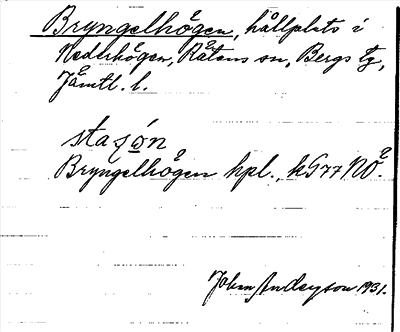 Bryngelhögen, hållplats i
Nederhögen, Rätans sn, Bergs tg,
Jämtl. l.
stasȯn
Bryngelhögen hpl., kG77NÖ.
John Andersson 1931.